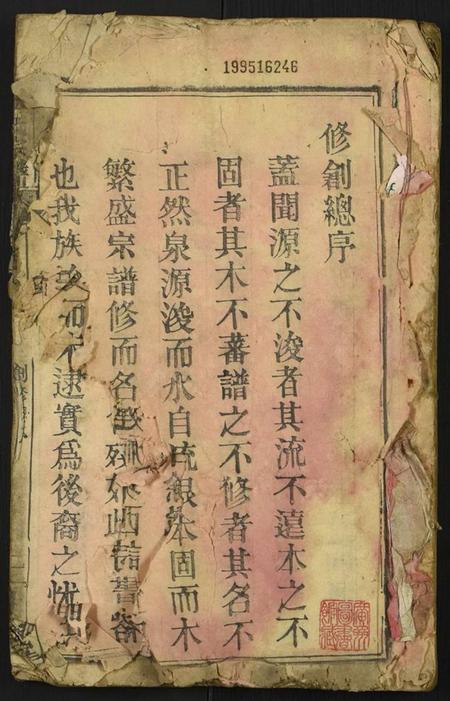 199516246
修創總序
蓋聞源之不浚者其流不遠木之不
固者其木不蕃譜之不修者其名不
正然泉源浚而水自流根本固而木
繁盛宗譜修而名
也我族 不逮實為後裔之